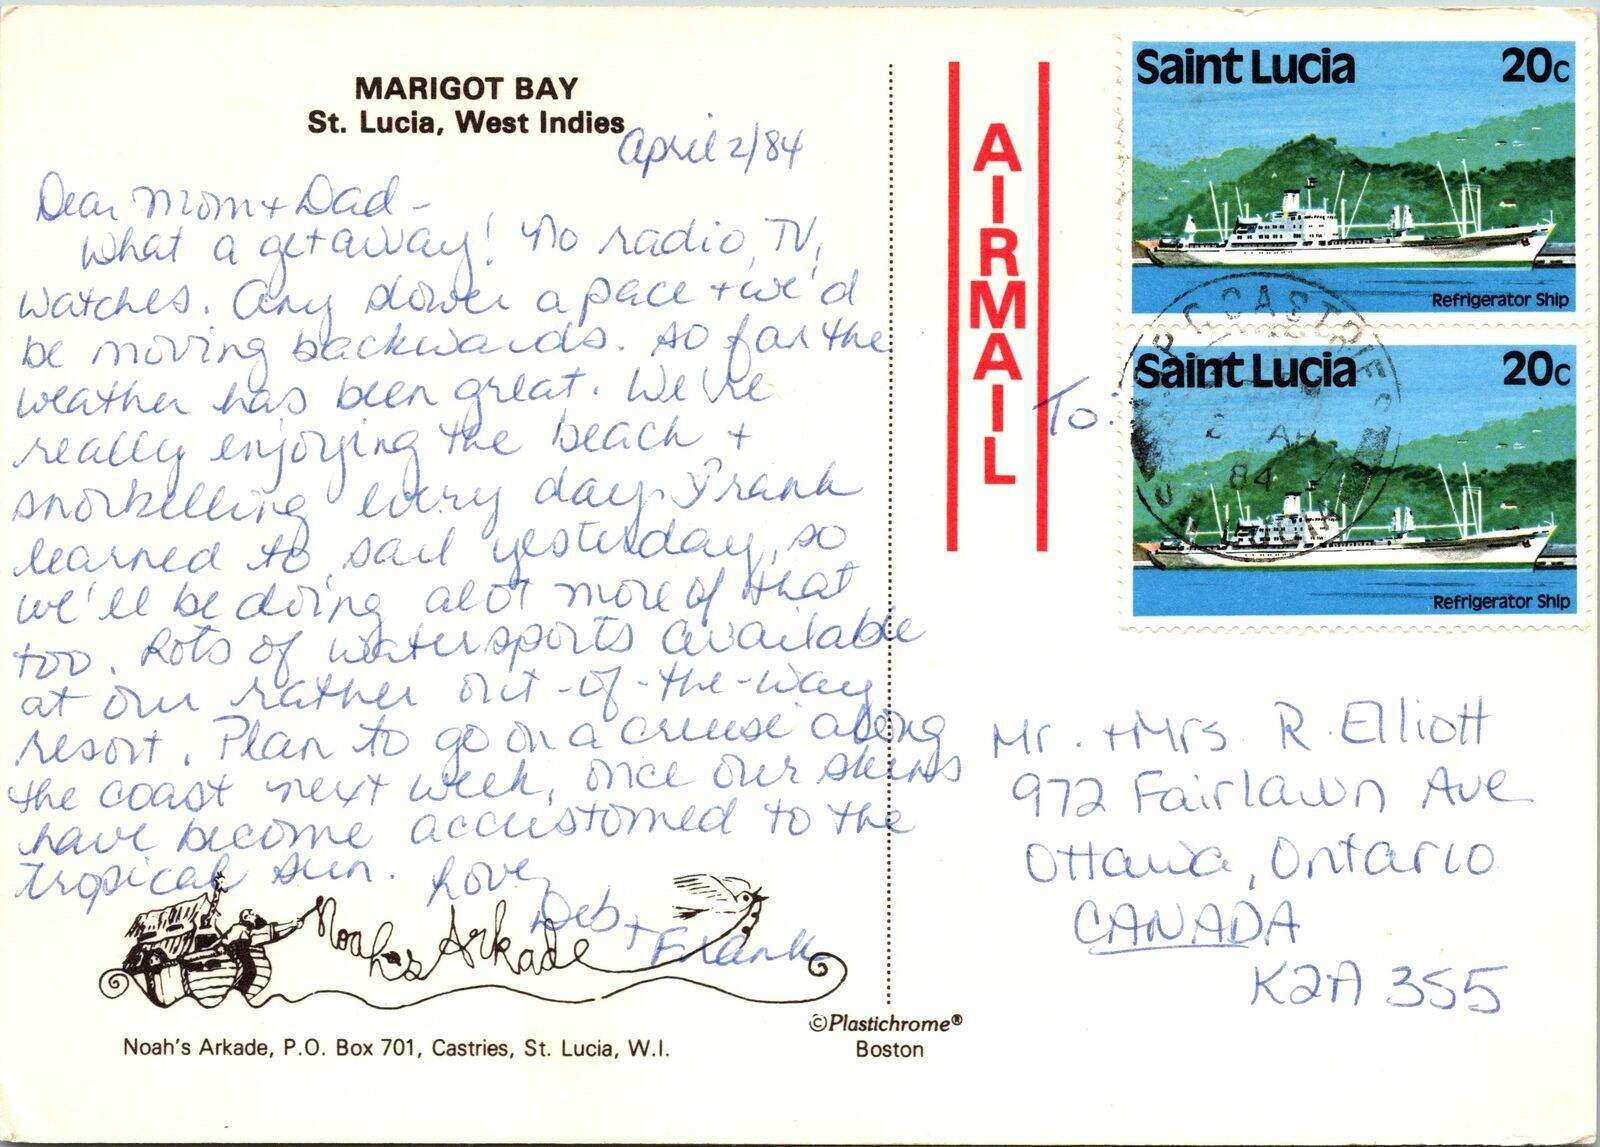 MARIGOT BAY
St. Lucia, West Indies
April 2/84
Dear Mom + Dad -
What a getaway! No radio, TV,
watches. Any slower a pace + we'd
be moving backwards. So far the
weather has been great. We're
really enjoying the beach +
snorkelling every day. Frank
learned to sail yesterday, so
we'll be doing alot more of that
too. Lots of watersports available
at our rather out-of-the-way
resort. Plan to go on a cruise along
the coast next week, once our skins
have become accustomed to the
tropical sun. Love,
Deb +
Frank
Noah's Arkade
Noah's Arkade, P.O. Box 701, Castries, St. Lucia, W.I.
©Plastichrome®
Boston
AIRMAIL
To:
Saint Lucia 20c
Refrigerator Ship
Saint Lucia 20c
Refrigerator Ship
CASTRIES
2 AP
84
Mr. + Mrs R. Elliott
972 Fairlawn Ave
Ottawa, Ontario
CANADA
K2A 3S5